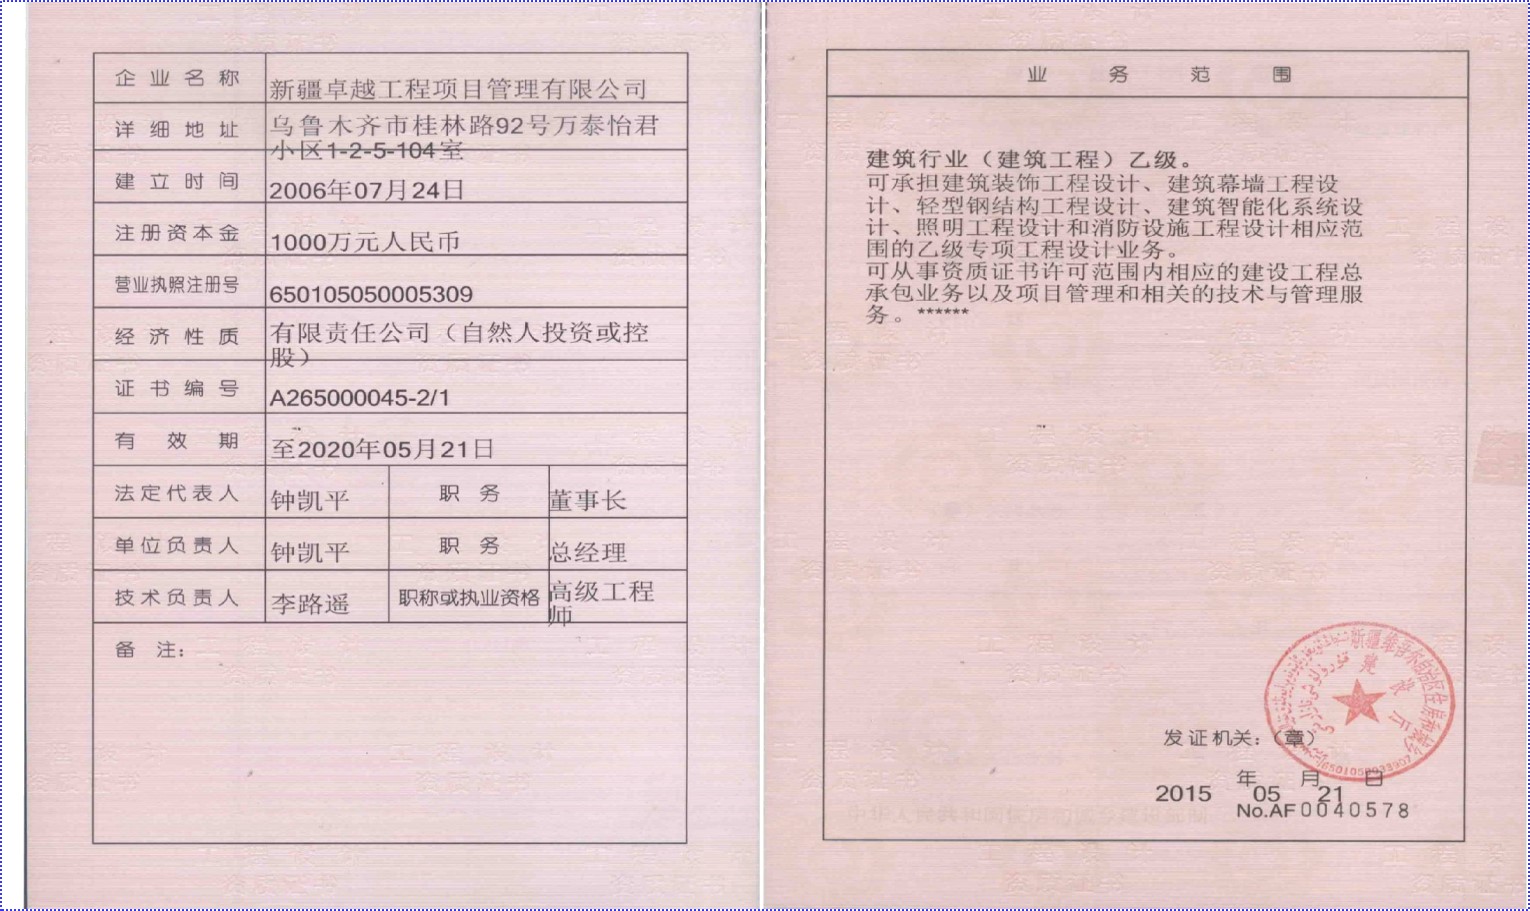 企业名称 新疆卓越工程项目管理有限公司
详细地址 乌鲁木齐市桂林路92号万泰怡君
小区1-2-5-104室
建立时间 2006年07月24日
注册资本金 1000万元人民币
营业执照注册号 650105050005309
经济性质 有限责任公司（自然人投资或控
股）
证书编号 A265000045-2/1
有效期 至2020年05月21日
法定代表人 钟凯平 职务 董事长
单位负责人 钟凯平 职务 总经理
技术负责人 李路遥 职称或执业资格 高级工程
师
备注：
业务范围
建筑行业（建筑工程）乙级。
可承担建筑装饰工程设计、建筑幕墙工程设
计、轻型钢结构工程设计、建筑智能化系统设
计、照明工程设计和消防设施工程设计相应范
围的乙级专项工程设计业务。
可从事资质证书许可范围内相应的建设工程总
承包业务以及项目管理和相关的技术与管理服
务。******
发证机关：（章）
2015年05月21日
No.AF 0040578
工程设计
资质证书